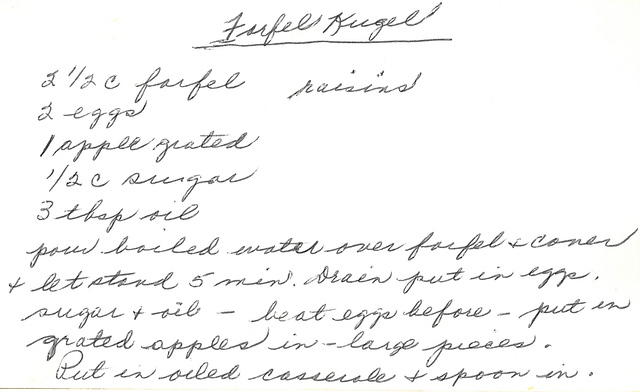 Farfel Kugel
2 1/2 c farfel raisins
2 eggs
1 apple grated
1/2 c sugar
3 tbsp oil
pour boiled water over farfel + cover
+ let stand 5 min. Drain put in eggs.
sugar + oil - beat eggs before - put in
grated apples in - large pieces.
Put in oiled casserole + spoon in.